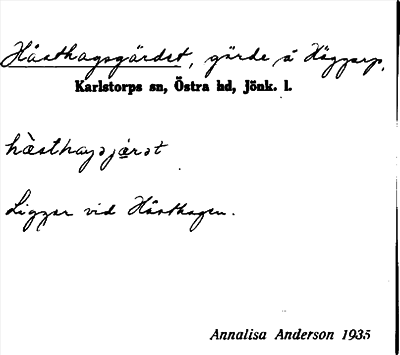 Hästhagsgärdet, gärde å Häggarp,
Karlstorps sn, Östra hd, Jönk. l.
hæsthagsjæ̀rət
Ligger vid Hästhagen.
Annalisa Anderson 1935